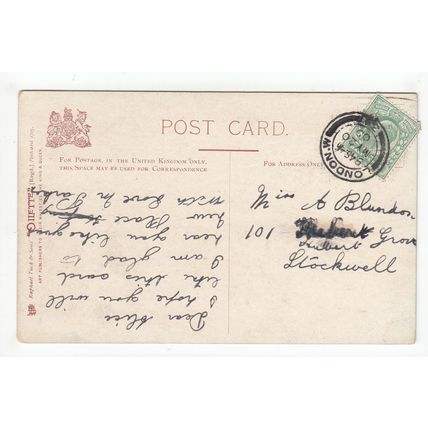 POST CARD.
FOR POSTAGE, IN THE UNITED KINGDOM ONLY,
THIS SPACE MAY BE USED FOR CORRESPONDENCE
FOR ADDRESS ONLY
LONDON.W.
Raphael Tuck & Sons' "OILETTE"
ART PUBLISHERS TO
KING & QUEEN.
Dear Alice
I hope you will
like this card
I am glad to
hear you like your
new Place
With Love
Miss A Blundon
101
Grove
Stockwell